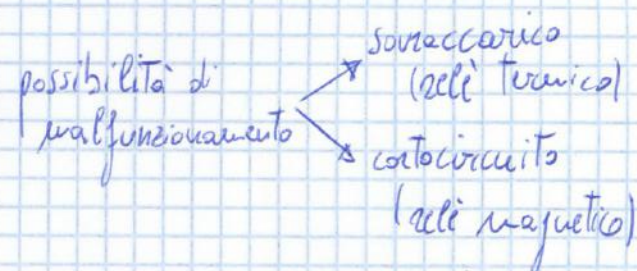 possibilità di
malfunzionamento
sovraccarico
(relè termico)
cortocircuito
(relè magnetico)